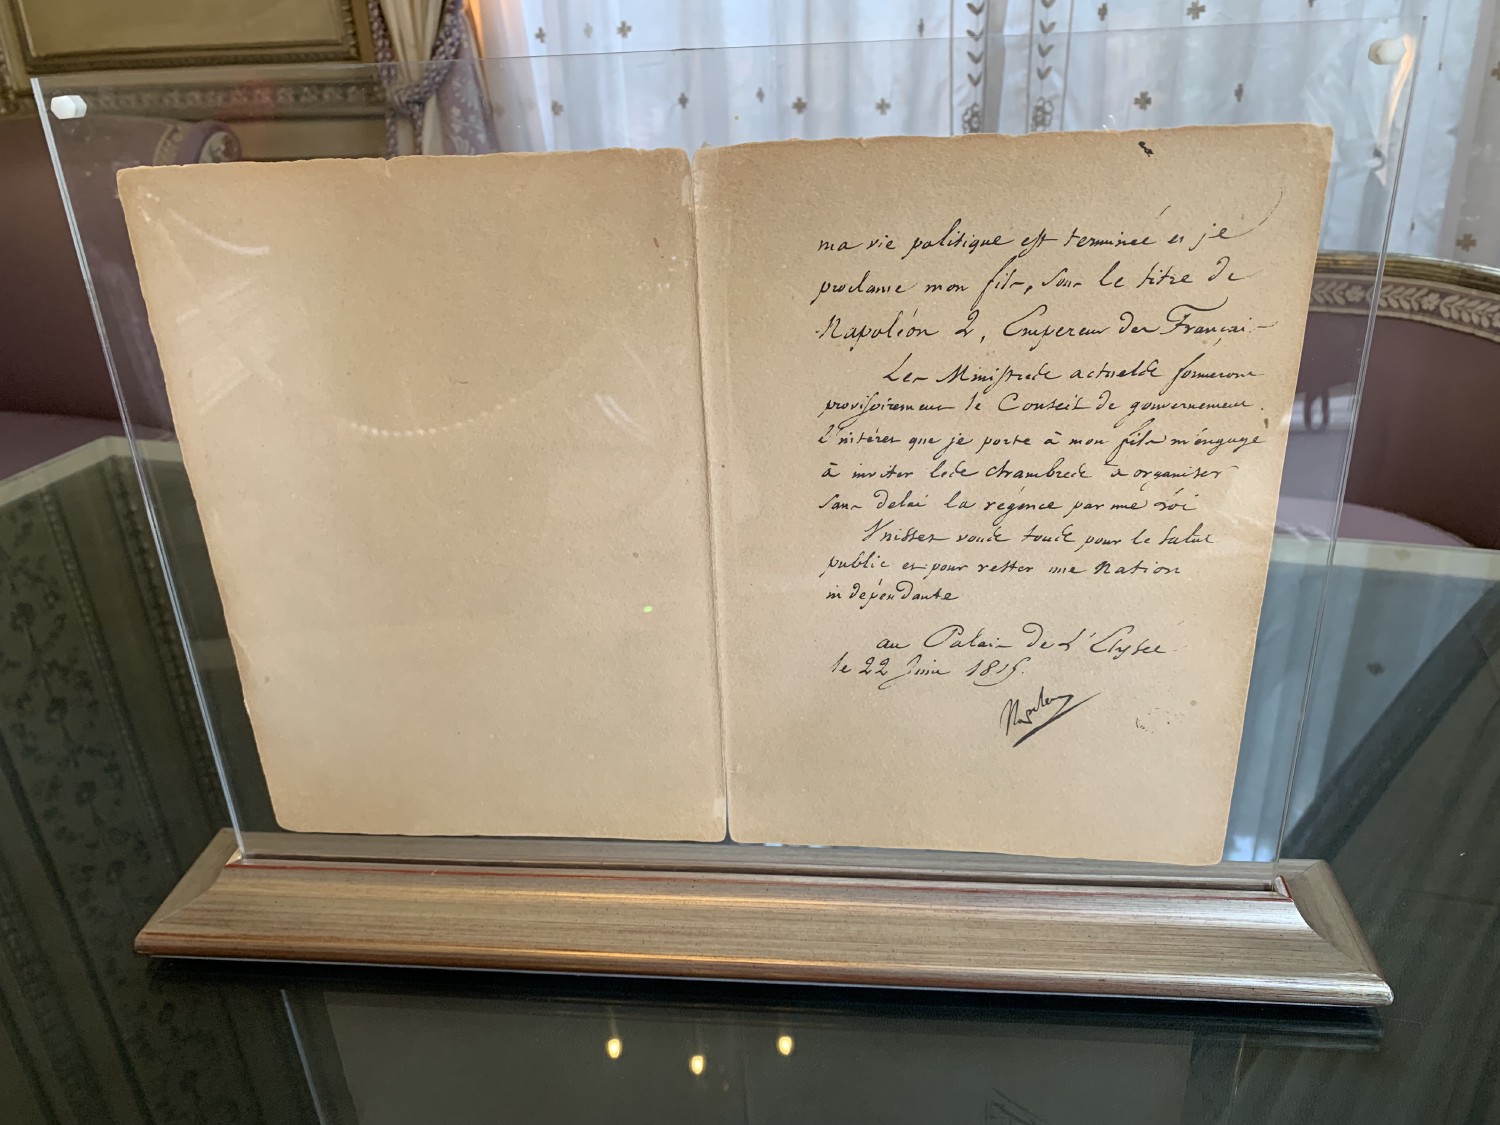 ma vie politique est terminée et je
proclame mon fils, sous le titre de
Napoléon 2, Empereur des Français
Les Ministres actuels formeront
provisoirement le Conseil de gouvernement.
L'intérêt que je porte à mon fils m'engage
à inviter les chambres à organiser
sans delai la régence par une loi
Unissez vous tous pour le salut
public et pour rester une Nation
indépendante
au Palais de L'Elysée
le 22 Juin 1815.
Napoleon